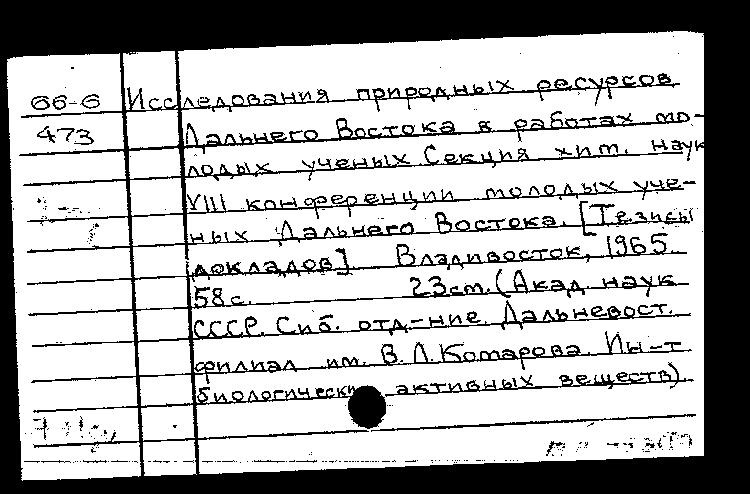 66-6 Исследования природных ресурсов
473 Дальнего Востока в работах мо-
лодых ученых Секция хим. наук
VIII конференции молодых уче-
ных Дальнего Востока. [Тезисы
докладов] Владивосток, 1965.
58 с. 23 см. (Акад. наук
СССР. Сиб. отд-ние. Дальневост.
филиал им. В. Л. Комарова. Ин-т
биологически активных веществ).